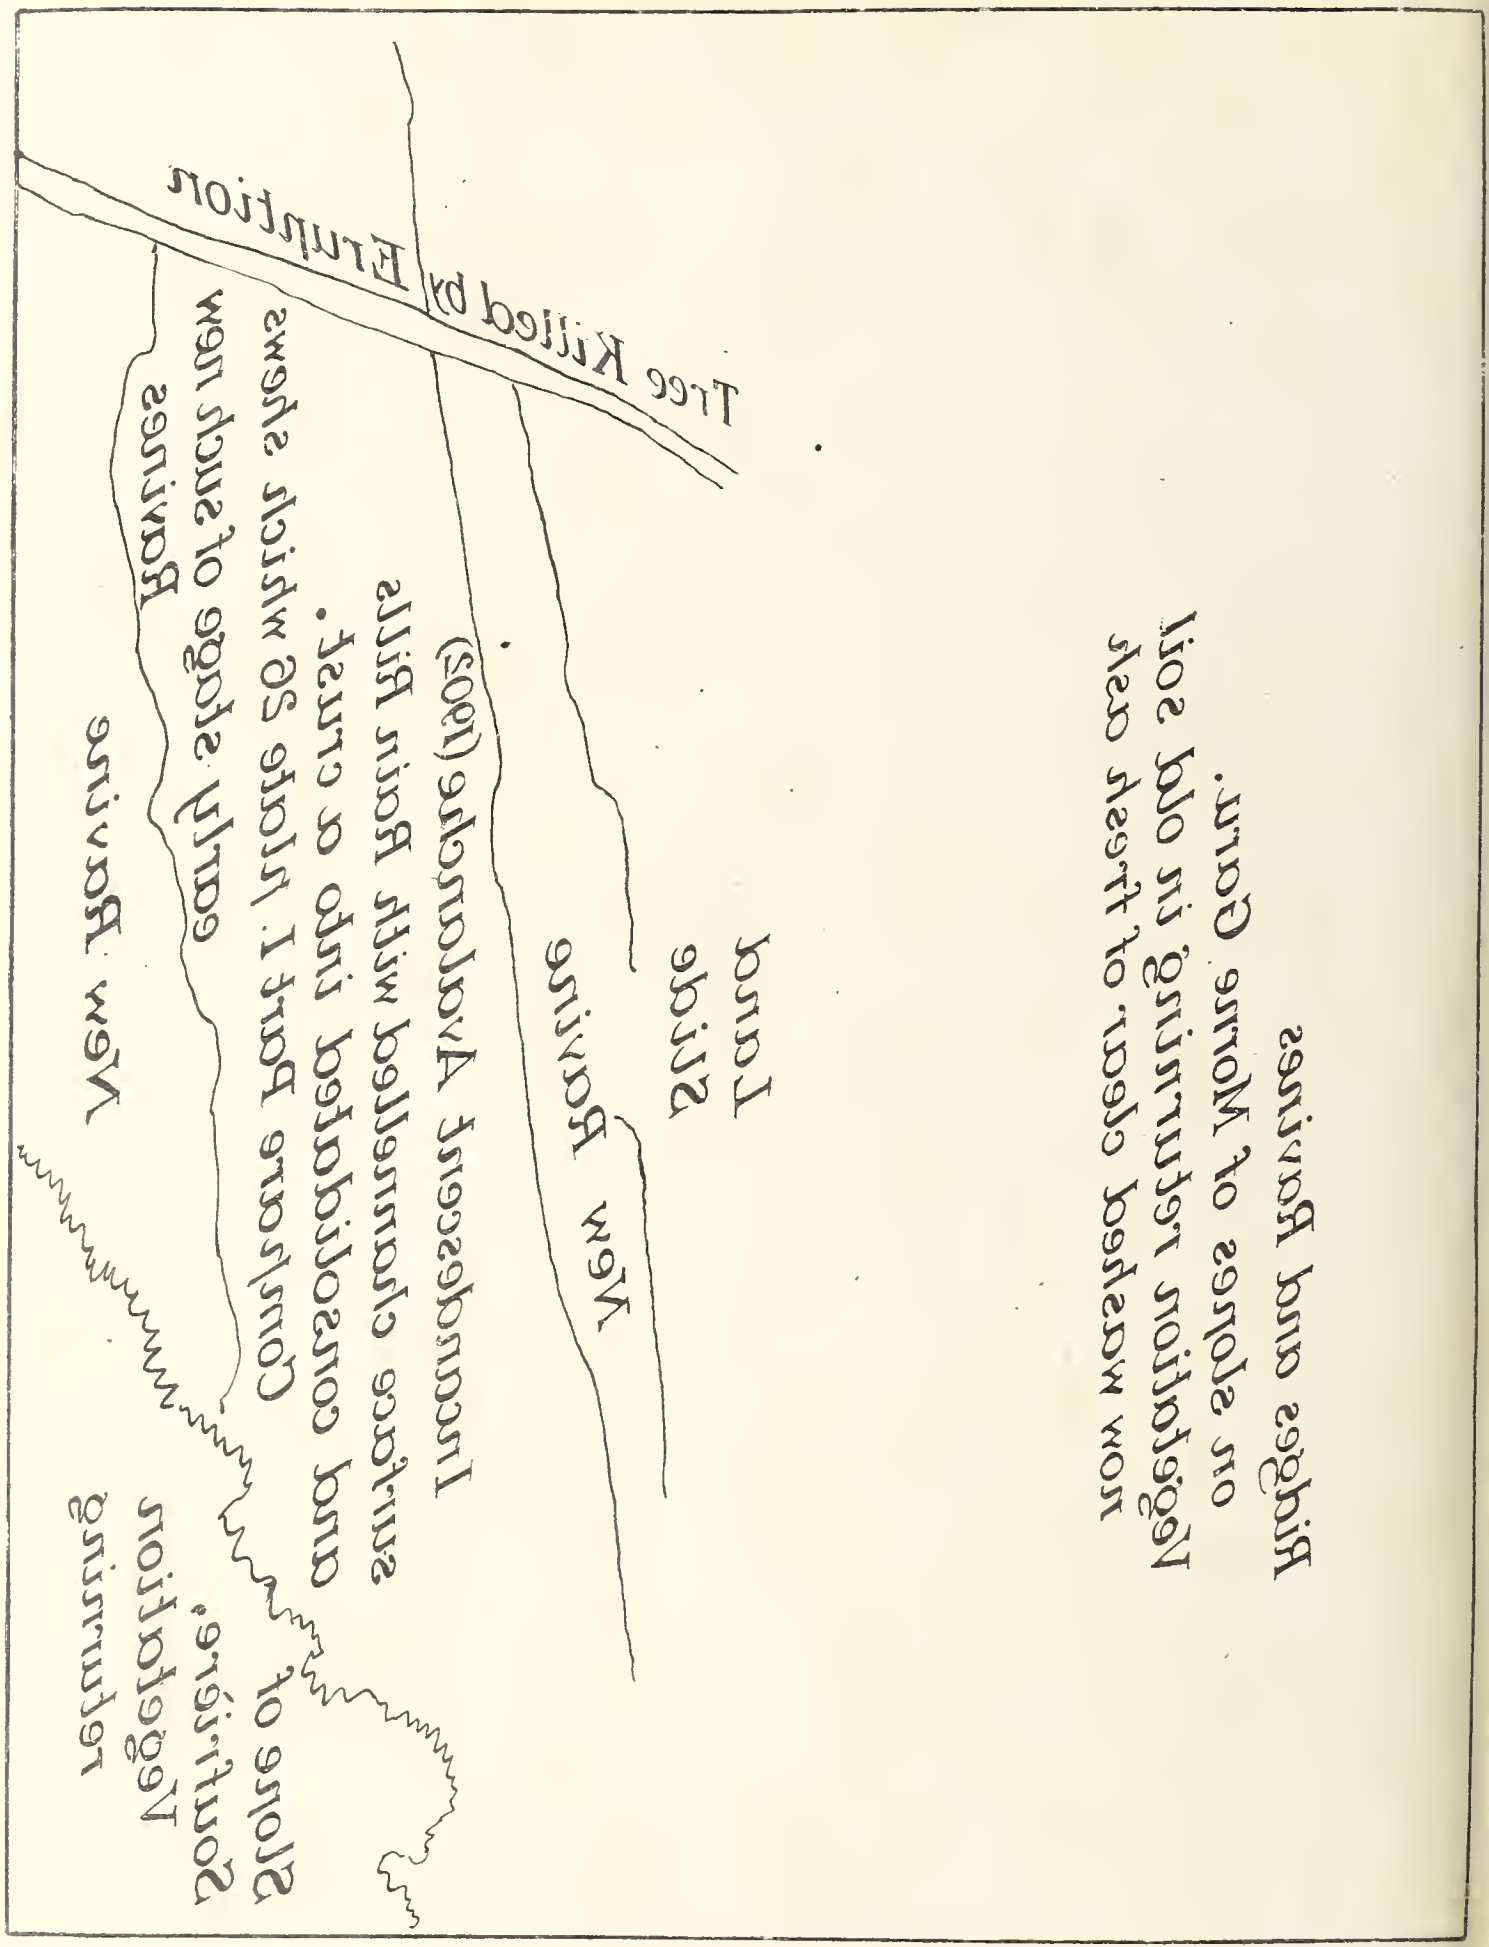 Ridges and Ravines
on slopes of Morne Garu.
Vegetation returning in old soil
now washed clear of fresh ash
Land
Slide
New Ravine
Tree Killed by Eruption
Incandescent Avalanche (1902)
surface channelled with Rain Rills
and consolidated into a crust.
Compare Part I. plate 26 which shews
early stage of such new
Ravines
New Ravine
Slope of
Soufrière,
Vegetation
returning